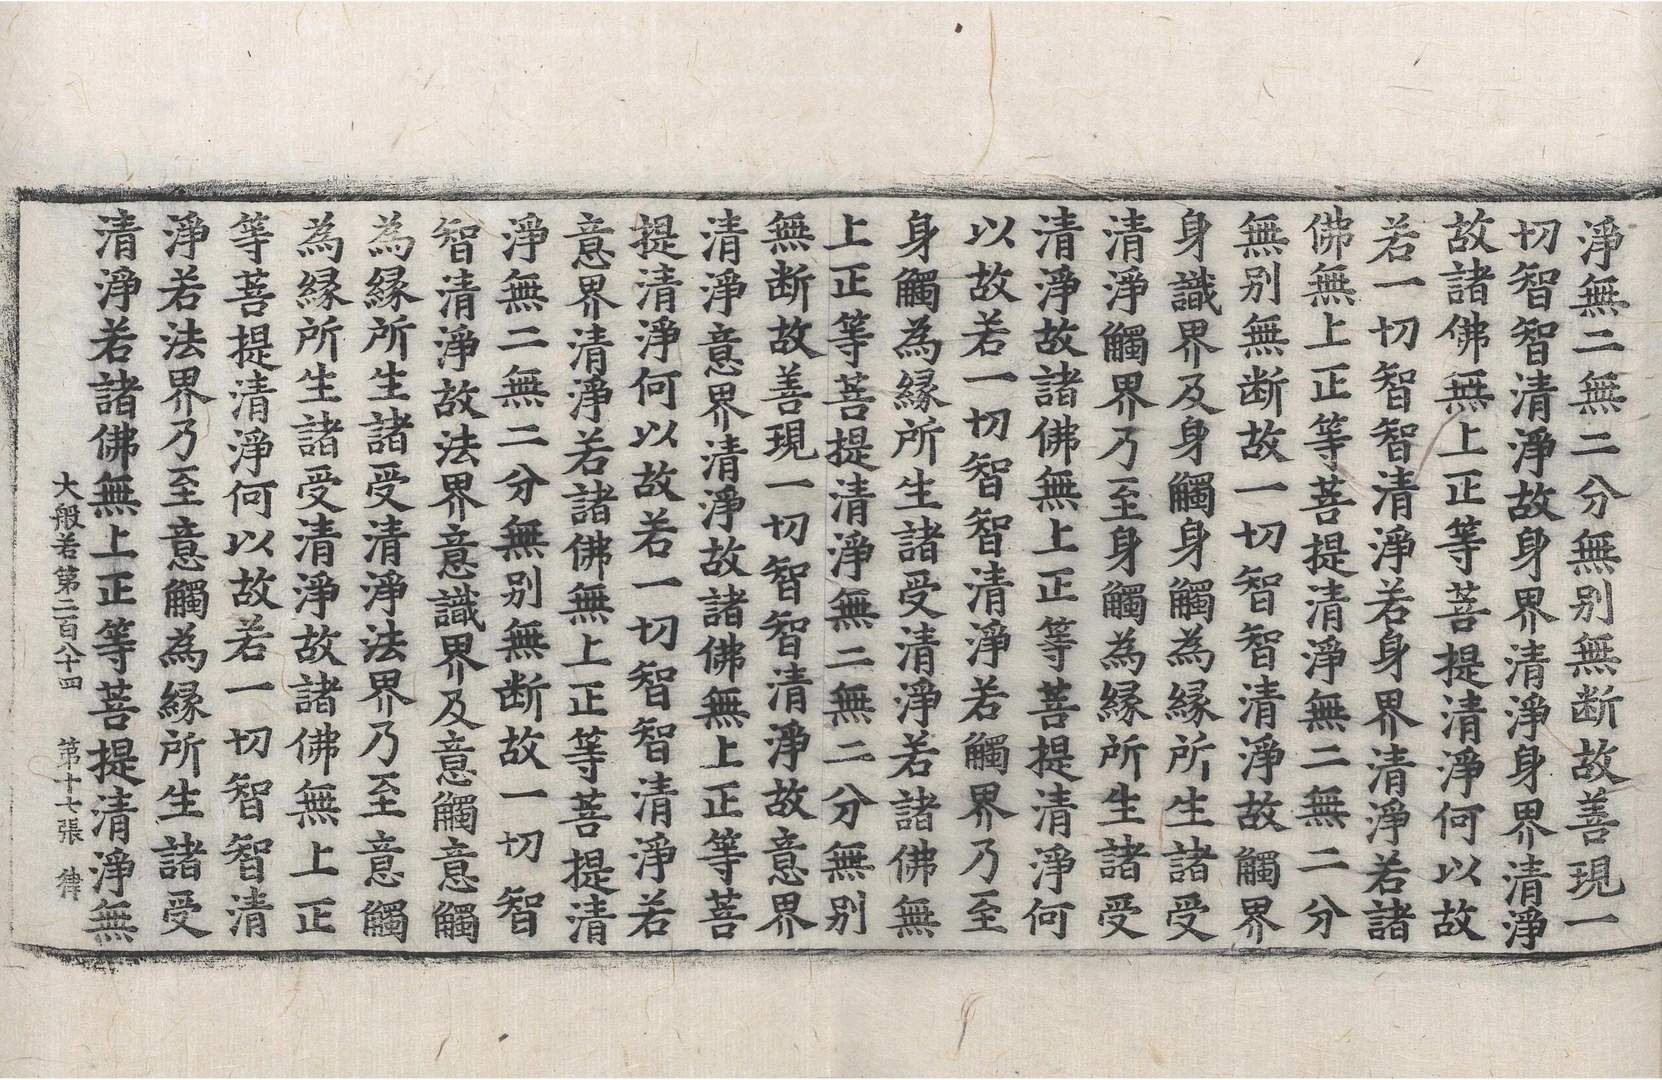 淨無二無二分無别無断故善現一
切智智清淨故身界清淨身界清淨
故諸佛無上正等菩提清淨何以故
若一切智智清淨若身界清淨若諸
佛無上正等菩提清淨無二無二分
無别無断故一切智智清淨故觸界
身識界及身觸身觸為縁所生諸受
清淨觸界乃至身觸為縁所生諸受
清淨故諸佛無上正等菩提清淨何
以故若一切智智清淨若觸界乃至
身觸為縁所生諸受清淨若諸佛無
上正等菩提清淨無二無二分無别
無断故善現一切智智清淨故意界
清淨意界清淨故諸佛無上正等菩
提清淨何以故若一切智智清淨若
意界清淨若諸佛無上正等菩提清
淨無二無二分無别無断故一切智
智清淨故法界意識界及意觸意觸
為縁所生諸受清淨法界乃至意觸
為縁所生諸受清淨故諸佛無上正
等菩提清淨何以故若一切智智清
淨若法界乃至意觸為縁所生諸受
清淨若諸佛無上正等菩提清淨無
大般若第二百八十四 第十七張 律